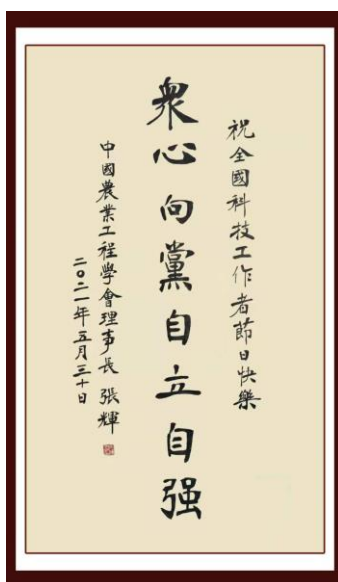 祝全國科技工作者節日快樂
衆心向黨自立自强
中國農業工程學會理事長 張輝
二〇二一年五月三十日